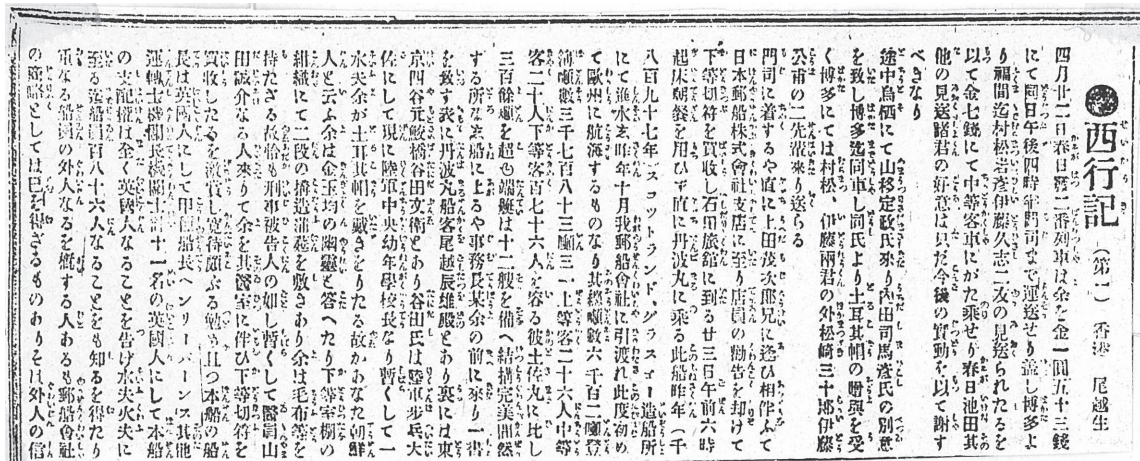 西行記 (第二) 香港 尾越生
四月廿二日春日發二番列車は余を金一圓五十三錢
にて同日午後四時半門司まで運送せり蓋し博多よ
り福間迄村松岩彦伊藤久志二友の見送られたるを
以て金七錢にて中等客車にがた乘せり春日池田其
他の見送諸君の好意は只だ今後の實動を以て謝す
べきなり
途中鳥栖にて山移定政氏來り内田司馬彦氏の別意
を致し博多迄同車し同氏より土耳其帽の贈與を受
く博多にては村松、伊藤兩君の外松崎三十郎伊藤
公甫の二先輩來り送らる
門司に着するや直に上田茂次郎兄に逢ひ相伴ふて
日本郵船株式會社支店に至り店員の勸告を却けて
下等切符を買收し石田旅館に到る廿三日午前六時
起床朝餐を用ひず直に丹波丸に乘る此船昨年(千
八百九十七年)スコットランド、グラスゴー造船所
にて進水去昨年十月我郵船會社に引渡れ此度初め
て歐州に航海するものなり其總噸數六千百二噸登
簿噸數三千七百八十三噸三一上等客二十六人中等
客二十人下等客百七十六人を容る彼土佐丸に比し
三百餘噸を超も端艇は十二艘を備へ結構完美間然
する所なし船に上るや事務長某余の前に來り一書
を致す表に丹波丸船客尾越辰雄殿とあり裏には東
京四谷元鮫橋谷田文衛とあり谷田氏は陸軍歩兵大
佐にして現に陸軍中央幼年學校長なり暫くして一
水夫余が土耳其帽を戴きをりたる故かあなた朝鮮
人と云ふ余は金玉均の幽靈と答へたり下等室棚の
組織にて二段の擔造蒲蓙を敷きあり余は毛布等を
持たざる故恰も刑事被告人の如し暫くして醫員山
田誠介なる人來りて余を其醫室に伴ひ下等切符を
買收したるを激賞し寛待頗ぶる勉む且つ本船の船
長は英國人にして甲但船長ヘンリーバーンス其他
運轉士機關長機關士計十一名の英國人にして本船
の支配權は全く英國人なることを告げ水夫火夫に
至る迄船員百八十六人なることをも知る得たり
重なる船員の外人なるを慨する人あるも郵船會社
の商略としては已を得ざるものありそは外人の信